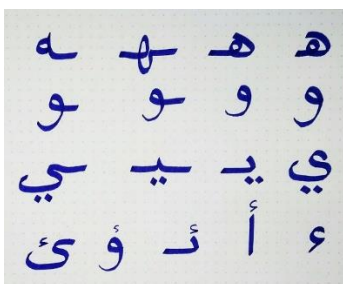 ه هـ ـهـ ـه
و و ـو ـو
ي يـ ـيـ ـي
ء أ ئـ ؤ ئ